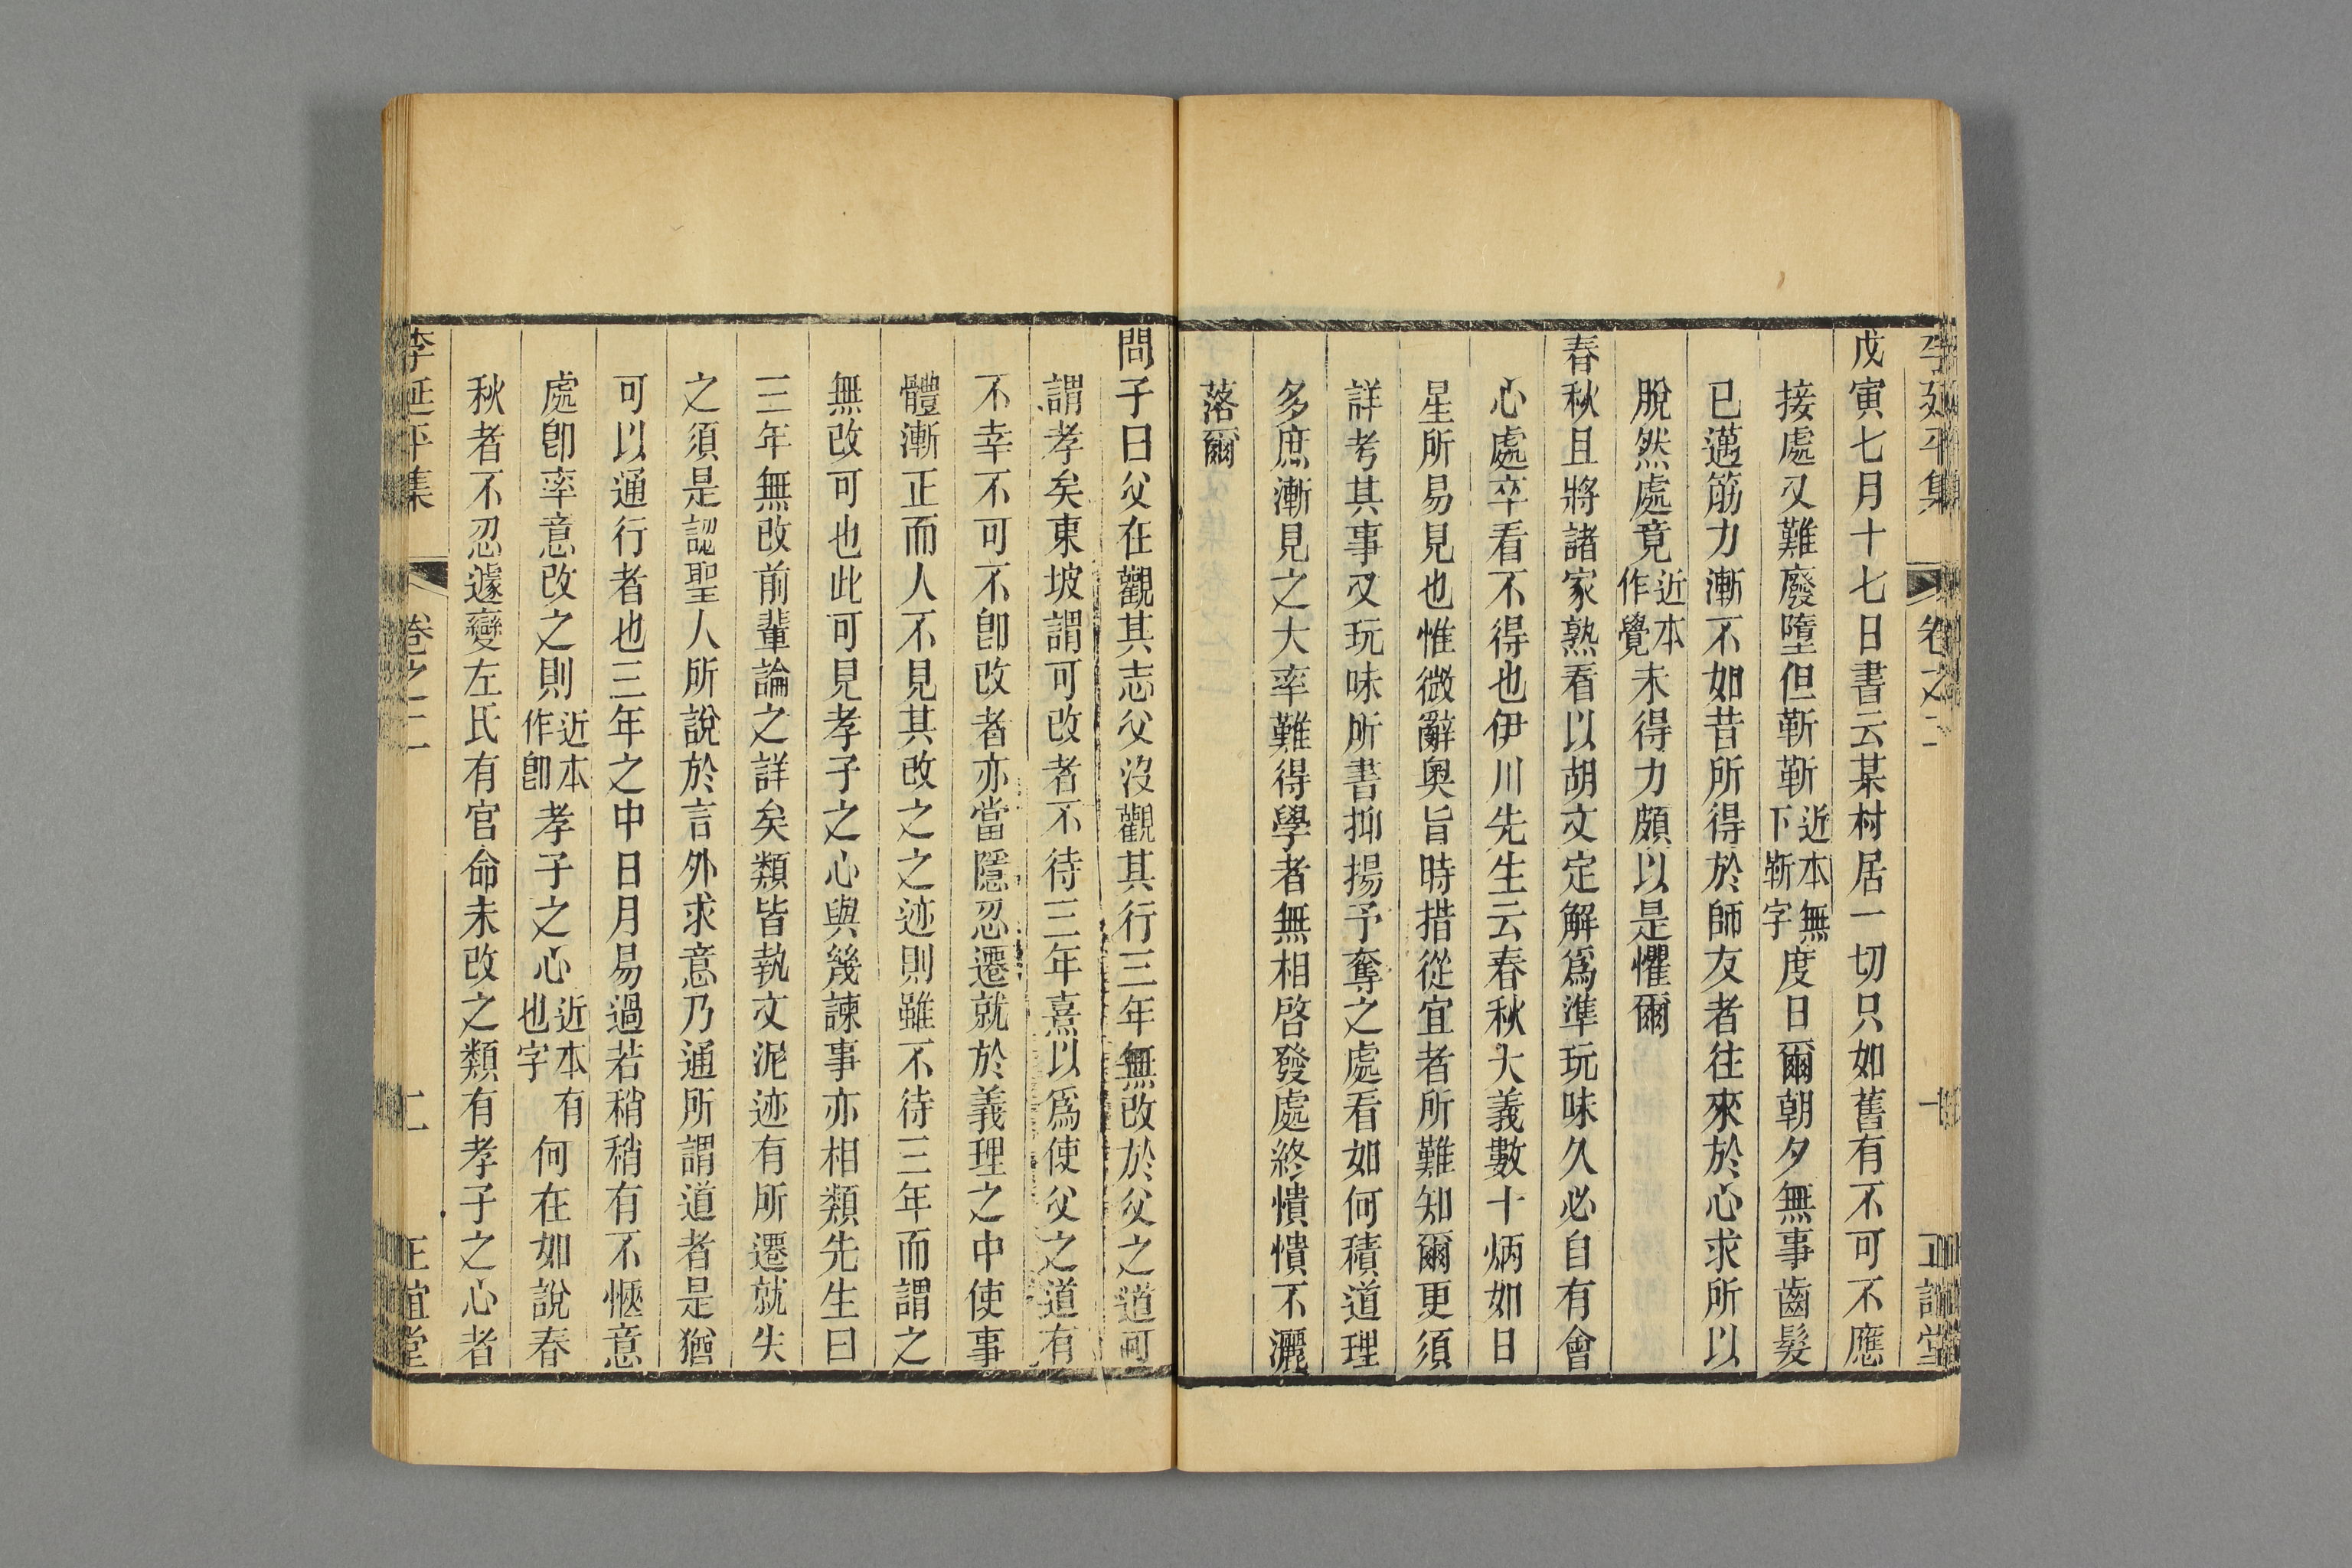 李延平集 卷之二 一 正誼堂
戊寅七月十七日書云某村居一切只如舊有不可不應
接處又難廢墮但靳靳近本無下靳字度日爾朝夕無事齒髮
已邁筋力漸不如昔所得於師友者往來於心求所以
脫然處竟近本作覺未得力頗以是懼爾
春秋且將諸家熟看以胡文定解爲準玩味久必自有會
心處卒看不得也伊川先生云春秋大義數十炳如日
星所易見也惟微辭奧旨時措從宜者所難知爾更須
詳考其事又玩味所書抑揚予奪之處看如何積道理
多庶漸見之大率難得學者無相啓發處終憒憒不灑
落爾
問子曰父在觀其志父沒觀其行三年無改於父之道可
謂孝矣東坡謂可改者不待三年熹以爲使父之道有
不幸不可不卽改者亦當隱忍遷就於義理之中使事
體漸正而人不見其改之之迹則雖不待三年而謂之
無改可也此可見孝子之心與幾諫事亦相類先生曰
三年無改前輩論之詳矣類皆執文泥迹有所遷就失
之須是認聖人所說於言外求意乃通所謂道者是猶
可以通行者也三年之中日月易過若稍稍有不愜意
處卽率意改之則近本作卽孝子之心近本有也字何在如說春
秋者不忍遽變左氏有官命未改之類有孝子之心者
李延平集 卷之二 二 正誼堂